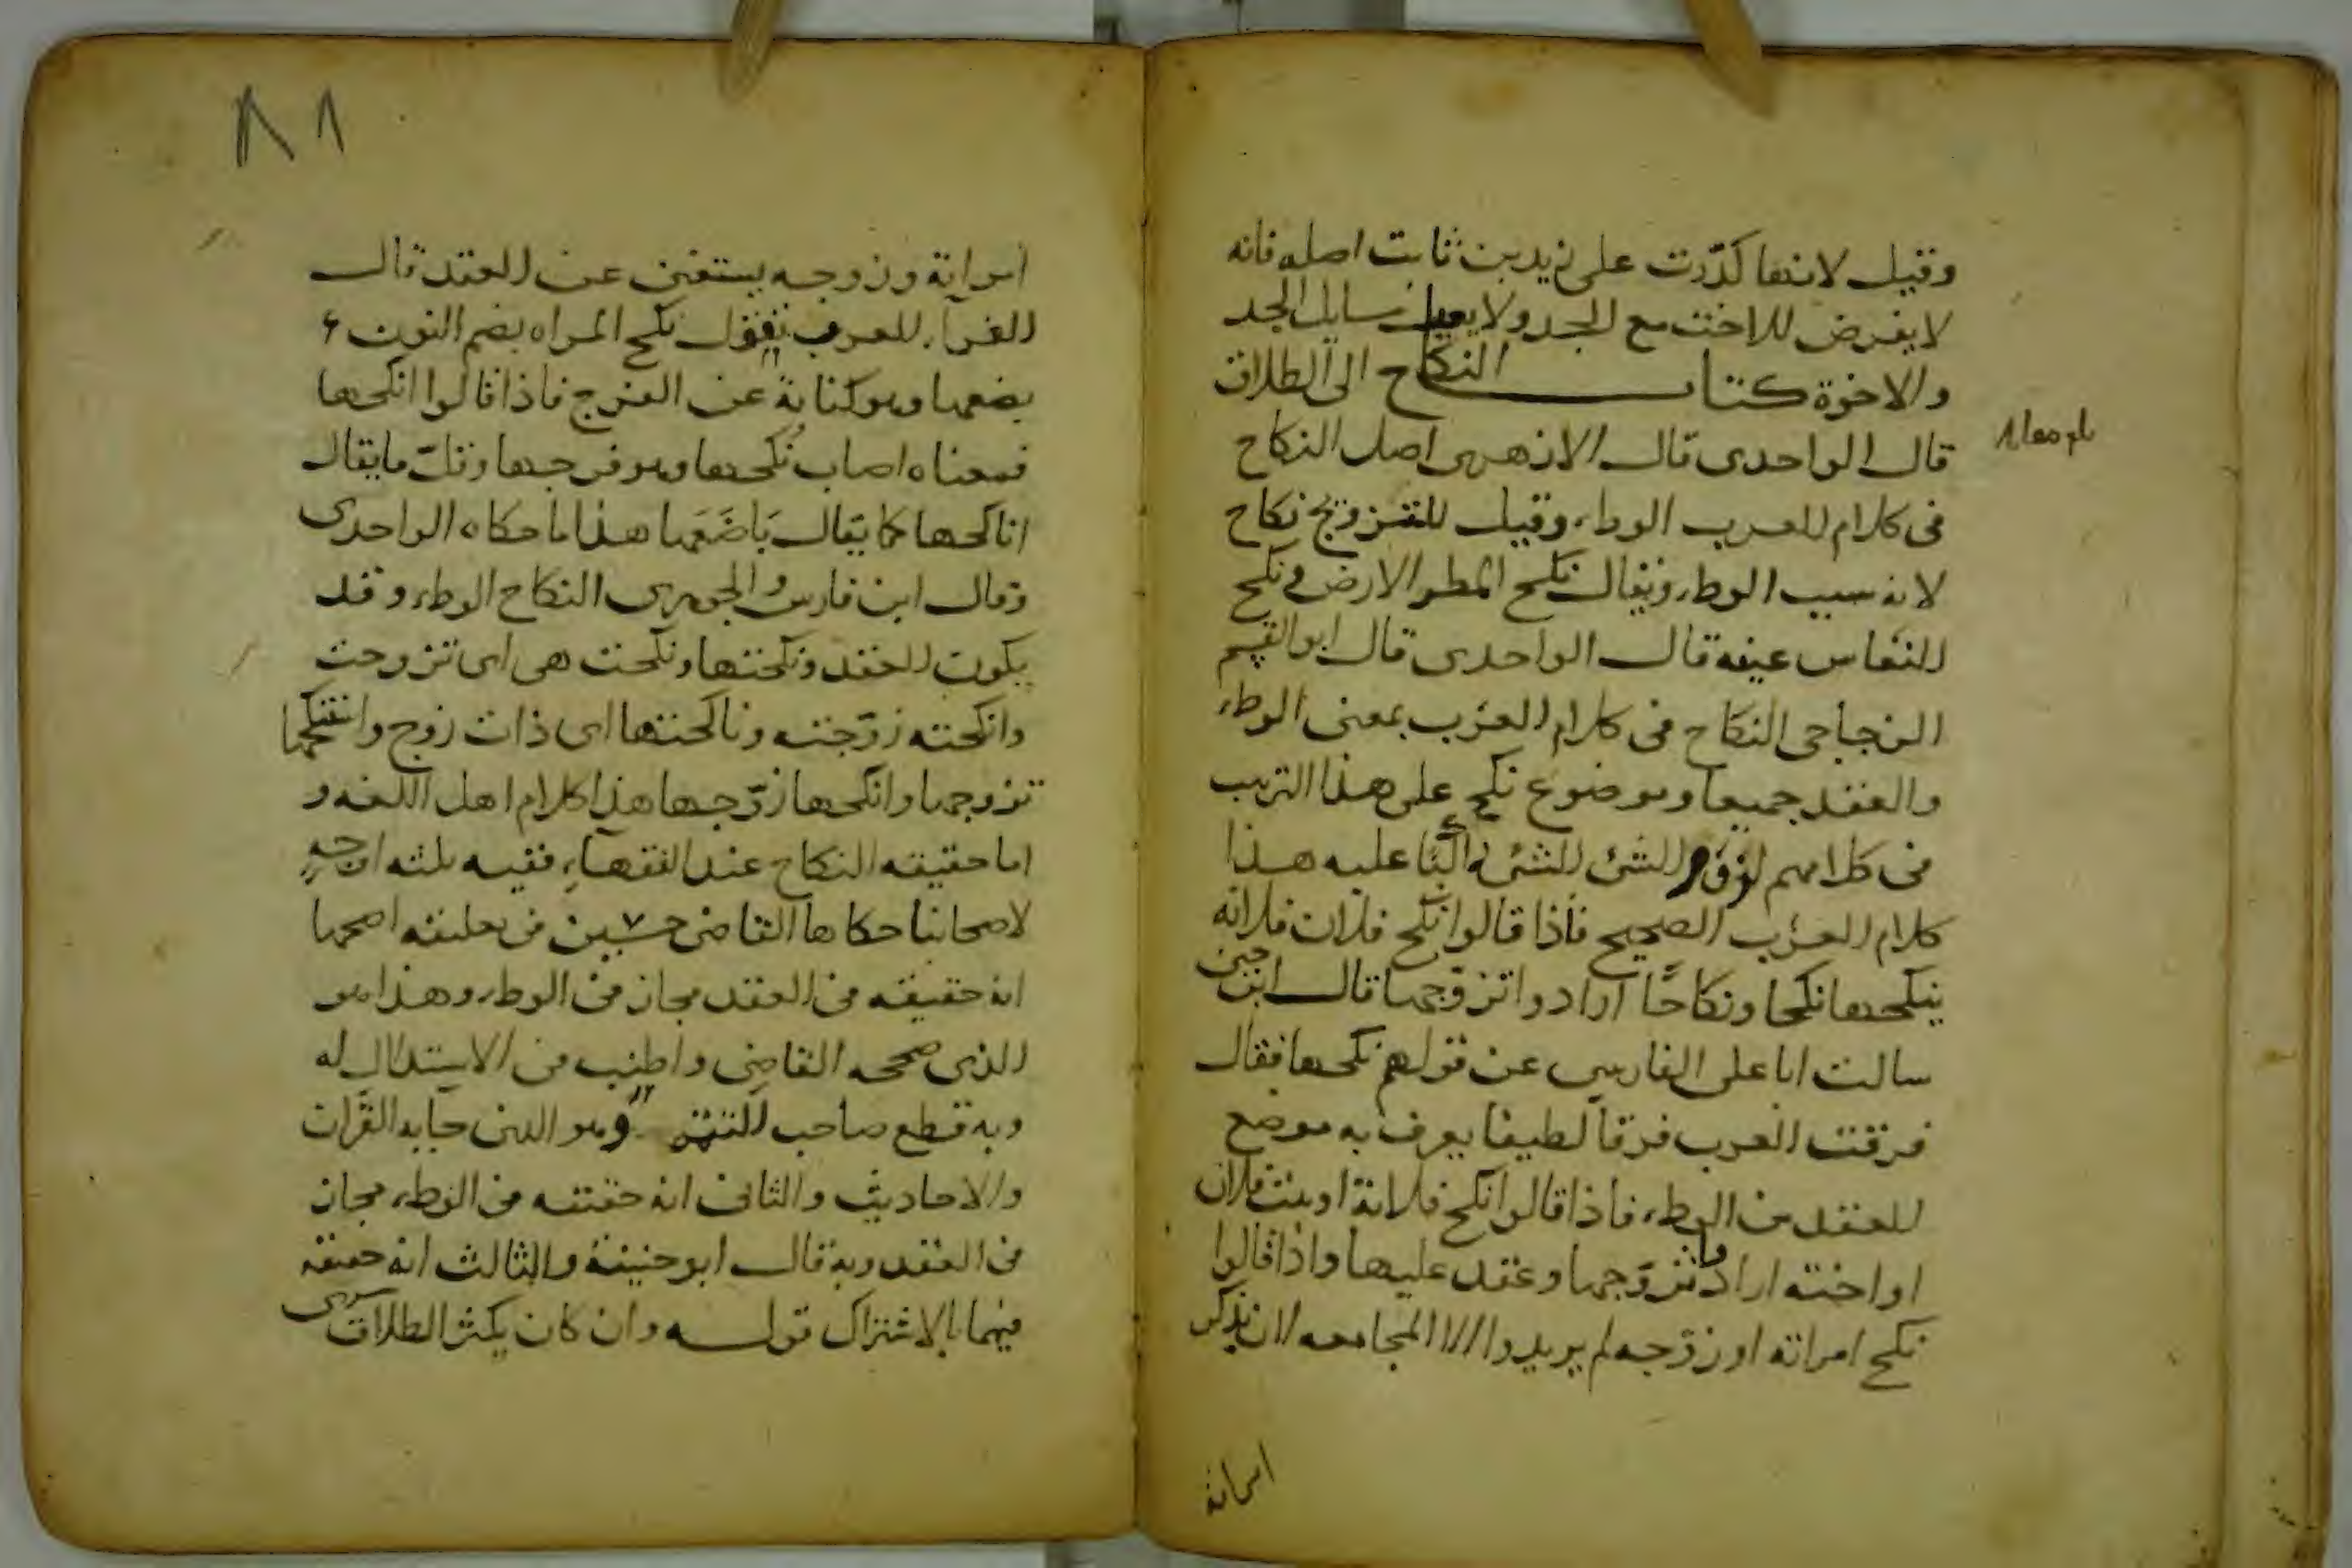 وقيل لانها كدّرت على زيد بن ثابت اصله فانه
لا يفرض للاخت مع الجد ولا يعيل مسايل الجد
والاخوة كتاب النكاح الى الطلاق
قال الواحدى قال الازهرى اصل النكاح
فى كلام العرب الوطء وقيل للتزويج نكاح
لانه سبب الوطء ويقال نكح المطر الارض ونكح
النعاس عينه قال الواحدى قال ابو القسم
الزجاجى النكاح فى كلام العرب بمعنى الوطء
والعقد جميعا وموضوع نكح على هذا الترتيب
فى كلامهم لزوم الشئ للشئ راكبا عليه هذا
كلام العرب الصحيح فاذا قالوا نكح فلان فلانة
ينكحها نكحا ونكاحًا ارادوا تزوجها قال ابن جنى
سالت ابا على الفارسى عن قولهم نكحها فقال
فرقت العرب فرقا لطيفا يعرف به موضع
العقد من الوطء فاذا قالوا نكح فلانة او بنت فلان
او اخته ارادوا تزوّجها وعقد عليها واذا قالوا
نكح امراته او زوّجه لم يريدوا الا المجامعه لان بذكر
امراته
٨١
امراته وزوجه يستغنى عن العقد قال
الفراء العرب تقول نكح المراه بضم النون
بضعها وهو كناية عن الفرج فاذا قالوا انكحها
فمعناه اصاب نُكحها وهو فرجها وقلّ ما يقال
ناكحها كما يقال بَاضَعَها هذا ما حكاه الواحدى
وقال ابن فارس والجوهرى النكاح الوطء وقد
يكون العقد ونكحتها ونكحت هى اى تزوجت
وانكحته زوّجته وناكحتها اى ذات زوج واستنكحها
تزوجها وانكحها زوّجها هذا كلام اهل اللغه و
اما حقيقه النكاح عند الفقهاء ففيه ثلثه اوجه
لاصحابنا حكاها القاضى حسين فى تعليقه اصحها
انه حقيقه فى العقد مجاز فى الوطء وهذا هو
الذى صححه القاضى واطنب فى الاستدلال له
وبه قطع صاحب التتمه وهو الذى جا به القرآن
والاحاديث والثانى انه حقيقه فى الوطء مجاز
فى العقد وبه قال ابو حنيفة والثالث انه حقيقه
فيهما بالاشتراك قولـــه وان كان يكثر الطلاق